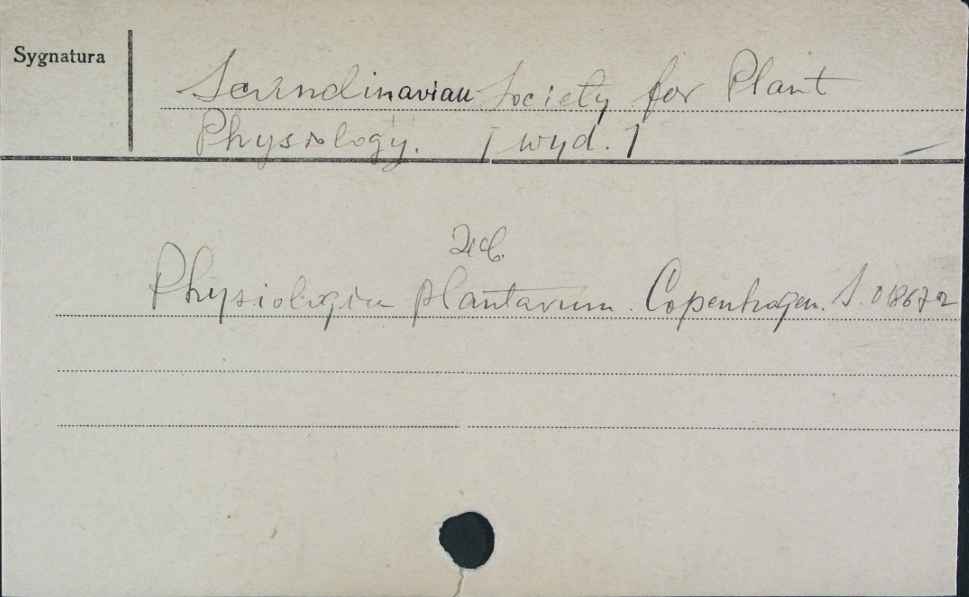 Sygnatura
Scandinavian Society for Plant
Physiology. [wyd.]
Zob.
Physiologia plantarum. Copenhagen. S. 018672